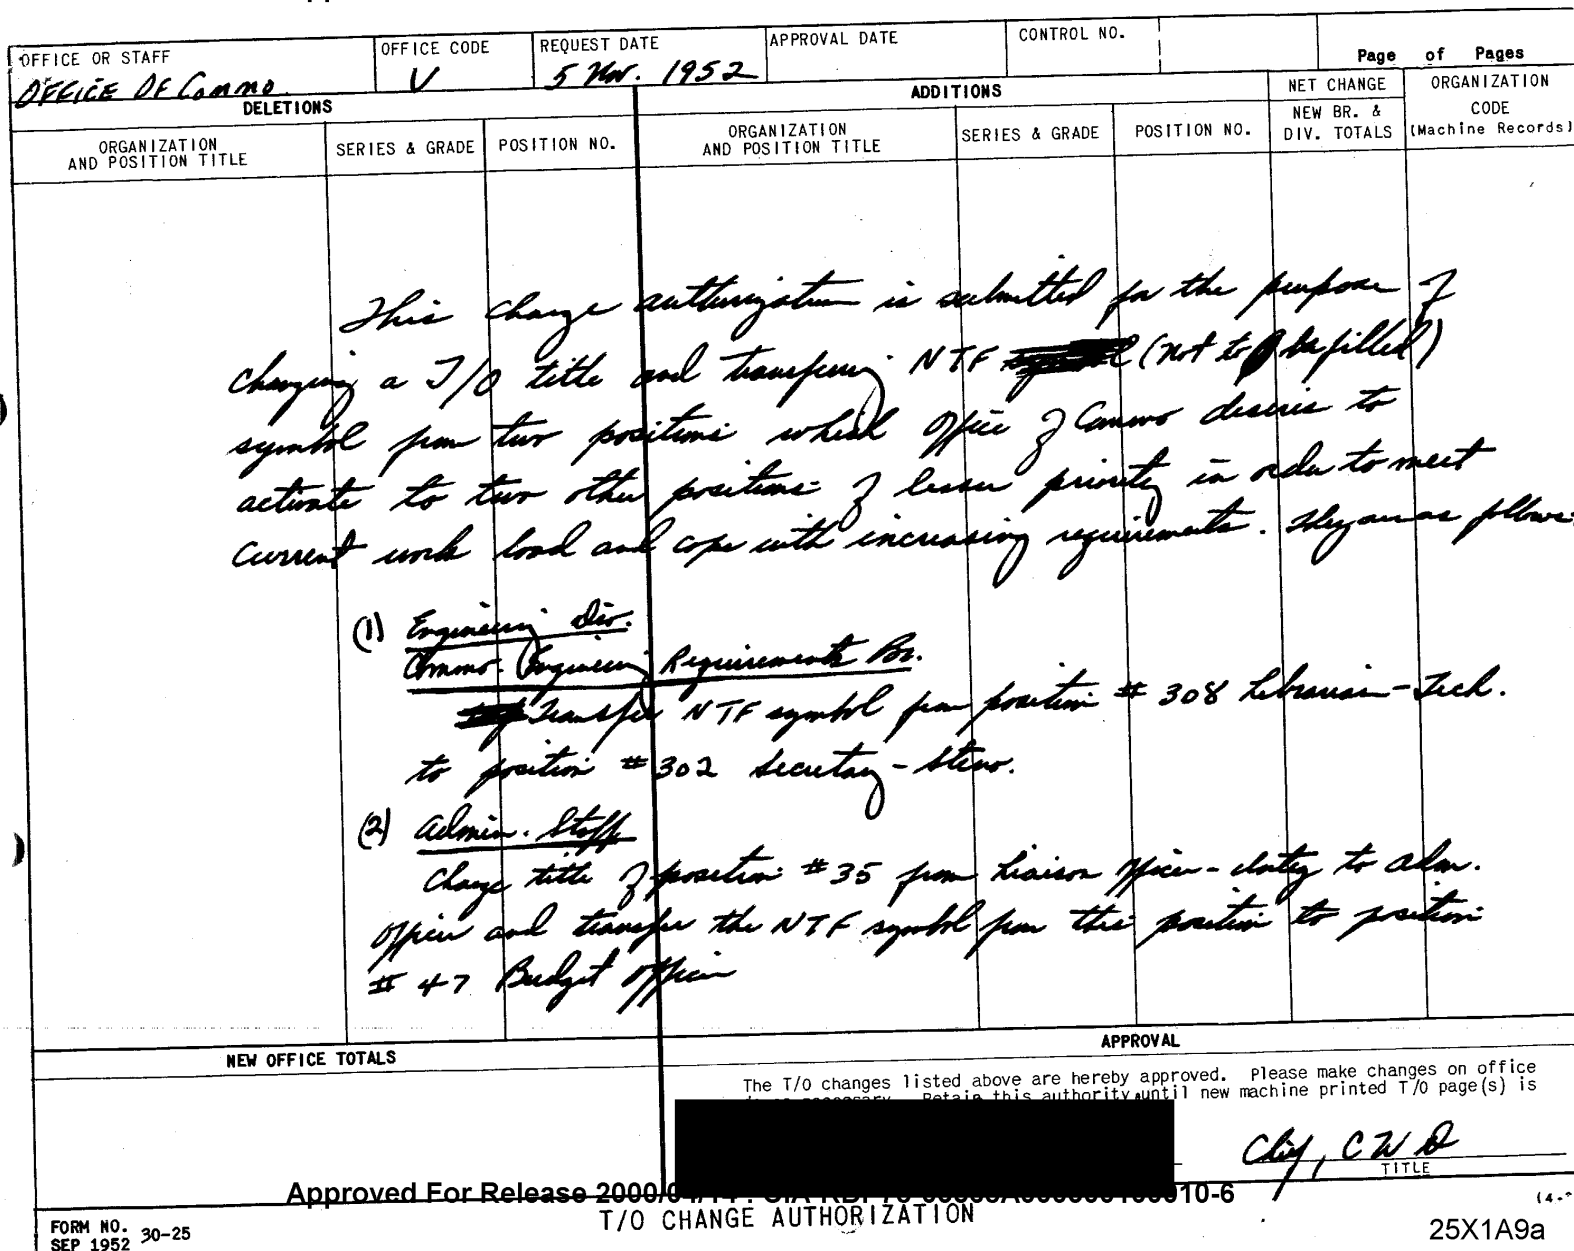 OFFICE OR STAFF
OFFICE OF Commo.
OFFICE CODE
V
REQUEST DATE
5 Nov. 1952
APPROVAL DATE
CONTROL NO.
Page of Pages
DELETIONS
ADDITIONS
NET CHANGE
NEW BR. &
DIV. TOTALS
ORGANIZATION
CODE
(Machine Records)
ORGANIZATION
AND POSITION TITLE
SERIES & GRADE
POSITION NO.
ORGANIZATION
AND POSITION TITLE
SERIES & GRADE
POSITION NO.
This change authorization is submitted for the purpose of
changing a T/O title and transferring NTF (not to be filled)
symbol from two positions which Office of Commo desires to
activate to two other positions of lesser priority in order to meet
current work load and cope with increasing requirements. They are as follows:
(1) Engineering Div.
Commo. Engineering Requirements Br.
Transfer NTF symbol from position # 308 Librarian-Tech.
to position # 302 Secretary-Steno.
(2) Admin. Staff
Change title of position # 35 from Liaison Officer - to Adm.
Officer and transfer the NTF symbol from this position to position
# 47 Budget Officer
NEW OFFICE TOTALS
APPROVAL
The T/O changes listed above are hereby approved. Please make changes on office
Retain this authority until new machine printed T/O page(s) is
Chief, CWD
TITLE
Approved For Release 2000/
10-6
T/O CHANGE AUTHORIZATION
FORM NO. 30-25
SEP 1952
25X1A9a